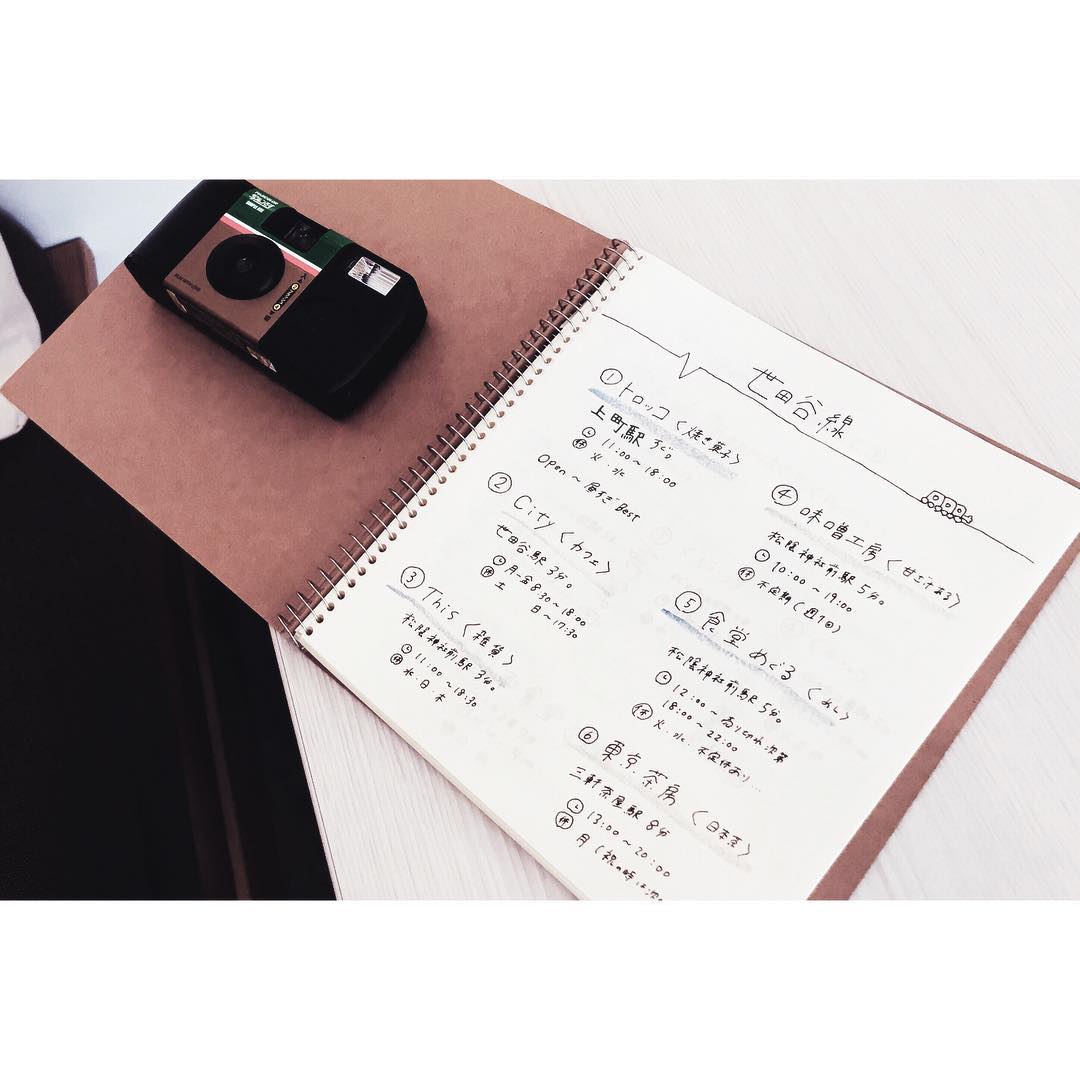 世田谷線
① トロッコ〈焼き菓子〉
上町駅 すぐ。
11:00〜18:00
休 火・水
Open〜昼すぎ Best
② City〈カフェ〉
世田谷駅 3分。
月-金 8:30〜18:00
土 日〜17:30
③ This〈雑貨〉
松陰神社前駅 3分。
11:00〜18:30
休 水・日・木
④ 味噌工房〈甘こうじある〉
松陰神社前駅 5分。
10:00〜19:00
休 不定期(週1回)
⑤ 食堂めぐる〈めし〉
松陰神社前駅 5分。
12:00〜売り切れ次第
18:00〜22:00
休 火・水 不定休あり…
⑥ 東京茶房〈日本茶〉
三軒茶屋駅 8分
13:00〜20:00
休 月(祝の時は次。